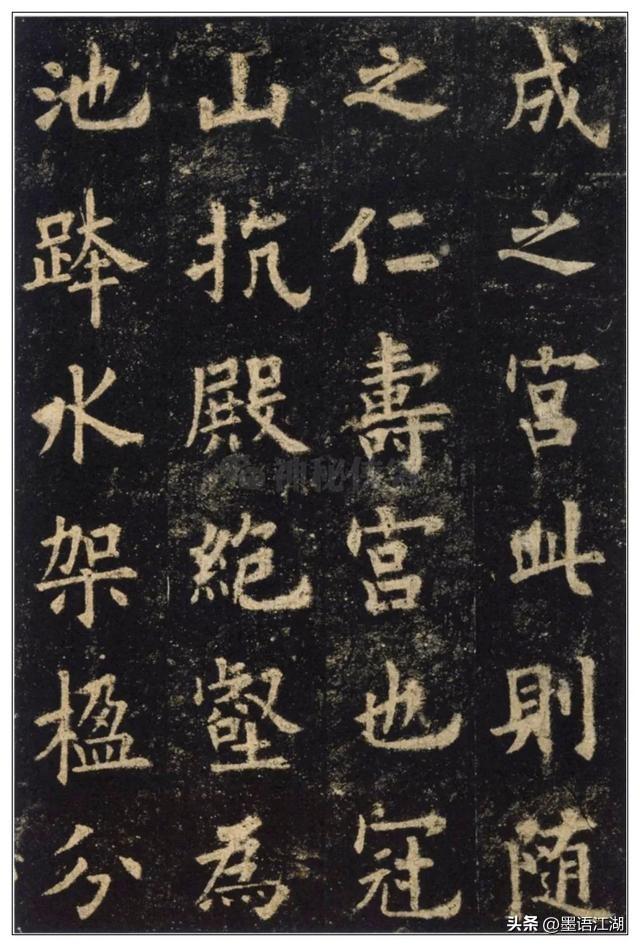 成之宮此則隨
之仁壽宮也冠
山抗殿絕壑為
池跨水架楹分
头条@墨语江湖